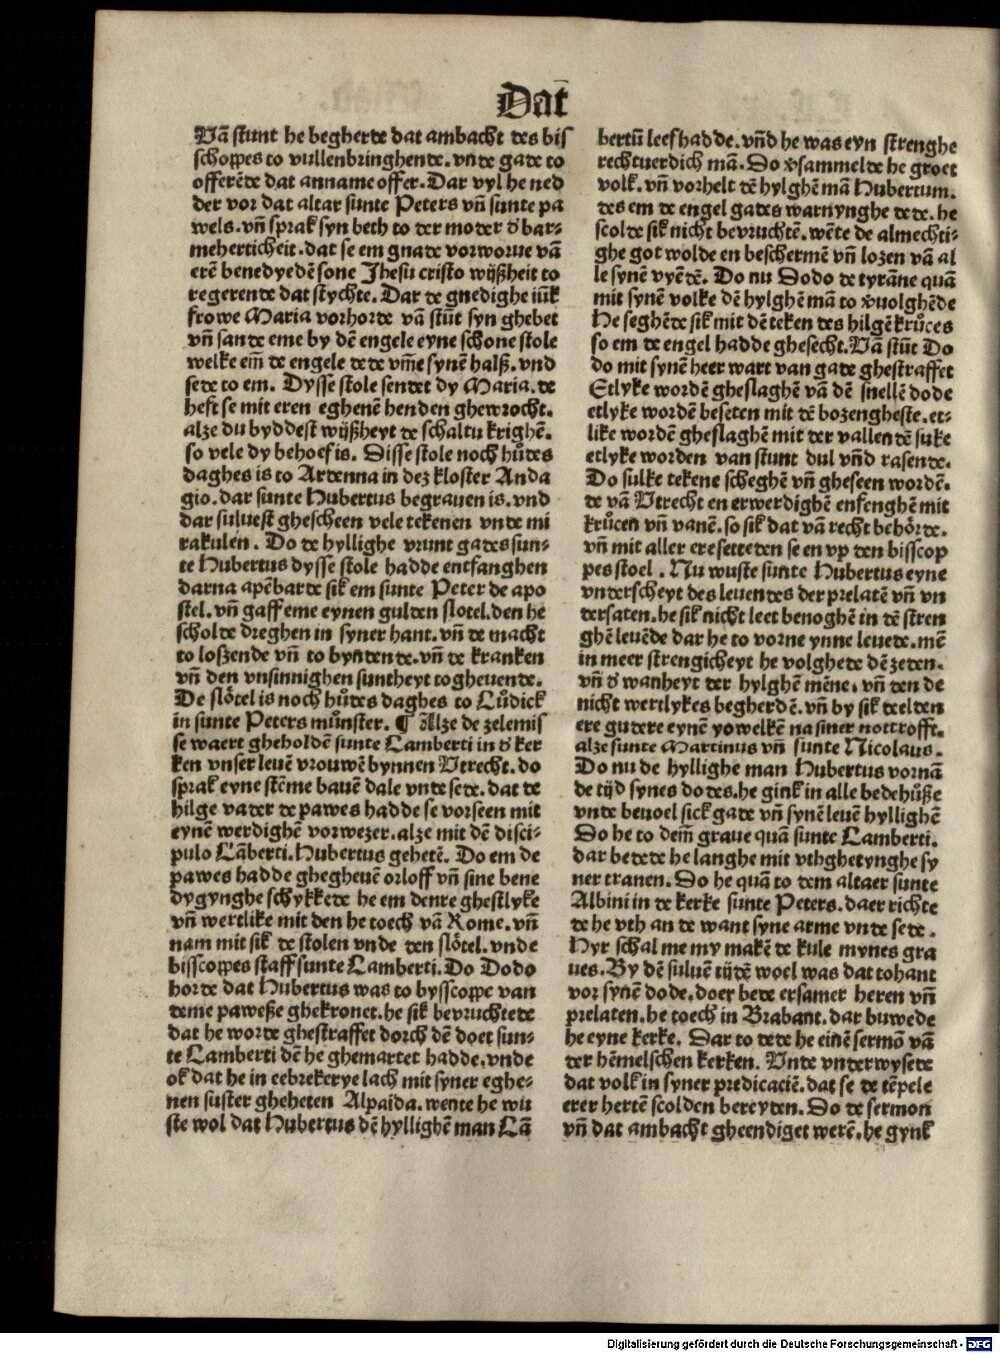 Dat̄
Vā stunt he begherde dat ambacht des bis
schoppes to vullenbringhende. vnde gade to
offerēde dat anname offer. Dar vyl he ned
der vor dat altar sunte Peters vn̄ sunte pa
wels. vn̄ sprak syn beth to der moder d᷒ bar-
meherticheit. dat se em gnade vorworue vā
erē benedyedē sone Jhesu cristo wijßheit to
regerende dat stychte. Dar de gnedighe iūk
frowe Maria vorhorde vā stūt syn ghebet
vn̄ sande eme by dē engele eyne schone stole
welke em̄ de engele dede vm̄e synē halß. vnd
sede to em. Dysse stole sendet dy Maria. de
heft se mit eren eghenē henden ghewrocht.
alze du byddest wijßheyt de schaltu krighē.
so vele dy behoef is. Disse stole noch hůdes
daghes is to Ardenna in dez kloster Anda
gio. dar sunte Hubertus begrauen is. vnd
dar suluest ghescheen vele tekenen vnde mi
rakulen. Do de hyllighe vrunt gades sun-
te Hubertus dysse stole hadde entfanghen
darna apēbarde sik em sunte Peter de apo
stel. vn̄ gaff eme eynen gulden slotel. den he
scholde dreghen in syner hant. vn̄ de macht
to loßzende vn̄ to byndende. vn̄ de kranken
vn̄ den vnsinnighen suntheyt to gheuende.
De slötel is noch hůdes daghes to Lůdick
in sunte Peters můnster. ¶ Alze de zelemis
se waert gheholdē sunte Lamberti in d᷒ ker
ken vnser leuē vrouwē bynnen Vtrecht. do
sprak eyne stēme bauē dale vnde sede. dat de
hilge vader de pawes hadde se vorseen mit
eynē werdighē vorwezer. alze mit dē disci-
pulo Lāberti. Hubertus gehetē. Do em de
pawes hadde ghegheuē orloff vn̄ sine bene
dygynghe schykkede he em denre ghestlyke
vn̄ wertlike mit den he toech vā Rome. vn̄
nam mit sik de stolen vnde den slötel. vnde
bisscoppes staff sunte Lamberti. Do Dodo
horde dat Hubertus was to bysscoppe van
deme paweße ghekronet. he sik bevruchtede
dat he worde ghestraffet dorch dē doet sun-
te Lamberti dē he ghemartet hadde. vnde
ok dat he in eebrekerye lach mit syner eghe-
nen suster gheheten Alpaida. wente he wu
ste wol dat Hubertus dē hyllighē man Lā
bertū leef hadde. vn̄d he was eyn strenghe
rechtuerdich mā. Do v̓sammelde he groet
volk. vn̄ vorhelt dē hylghē mā Hubertum.
des em de engel gades warnynghe dede. he
scolde sik nicht bevruchtē. wēte de almechti-
ghe got wolde en beschermē vn̄ lozen vā al
le synē vyēdē. Do nu Dodo de tyrāne quā
mit synē volke dē hylghē mā to v̓uolghēde
He seghēde sik mit dē teken des hilgē krůces
so em de engel hadde ghesecht. Vā stūt Do
do mit synē heer wart van gade ghestraffet
Etlyke wordē gheslaghē vā dē snellē dode
etlyke wordē beseten mit dē bozengheste. et-
like wordē gheslaghē mit der vallendē suke
etlyke worden van stunt dul vn̄d rasende.
Do sulke tekene scheghē vn̄ gheseen wordē.
de vā Vtrecht en erwerdighē enfenghē mit
krůcen vn̄ vanē. so sik dat vā recht behörde.
vn̄ mit aller ere setteden se en vp den bisscop
pes stoel. Nu wuste sunte Hubertus eyne
vnderscheyt des leuendes der prelatē vn̄ vn
dersaten. he sik nicht leet benoghē in dē stren
ghē leuēde dar he to vorne ynne leuede. mē
in meer strengicheyt he volghede dē zeden.
vn̄ d᷒ wanheyt der hylghē mēne. vn̄ den de
nicht wertlykes begherdē. vn̄ by sik deelden
ere gudere eynē yowelkē na siner nottrofft.
alze sunte Martinus vn̄ sunte Nicolaus.
Do nu de hyllighe man Hubertus vornā
de tijd synes dodes. he gink in alle bedehůße
vnde beuoel sick gade vn̄ synē leuē hyllighē
Do he to dem̄ graue quā sunte Lamberti.
dar bedede he langhe mit vthghetynghe sy
ner tranen. Do he quā to dem altaer sunte
Albini in de kerke sunte Peters. daer richte
de he vth an de want syne arme vnde sede.
Hyr schal me my makē de kule mynes gra
ues. By dē suluē tijdē woel was dat tohant
vor synē dode. doer bede ersamer heren vn̄
prelaten. he toech in Brabant. dar buwede
he eyne kerke. Dar to dede he einē sermō vā
der hēmelschen kerken. Vnde vnderwysede
dat volk in syner predicaciē. dat se de tēpele
erer hertē scolden bereyden. Do de sermon
vn̄ dat ambacht gheendiget werē. he gynk
Digitalisierung gefördert durch die Deutsche Forschungsgemeinschaft - DFG